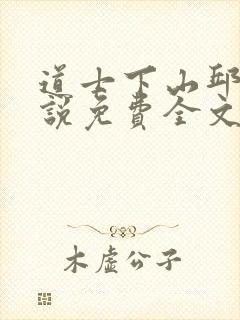 道士下山邱
說免費全文
木虛公子